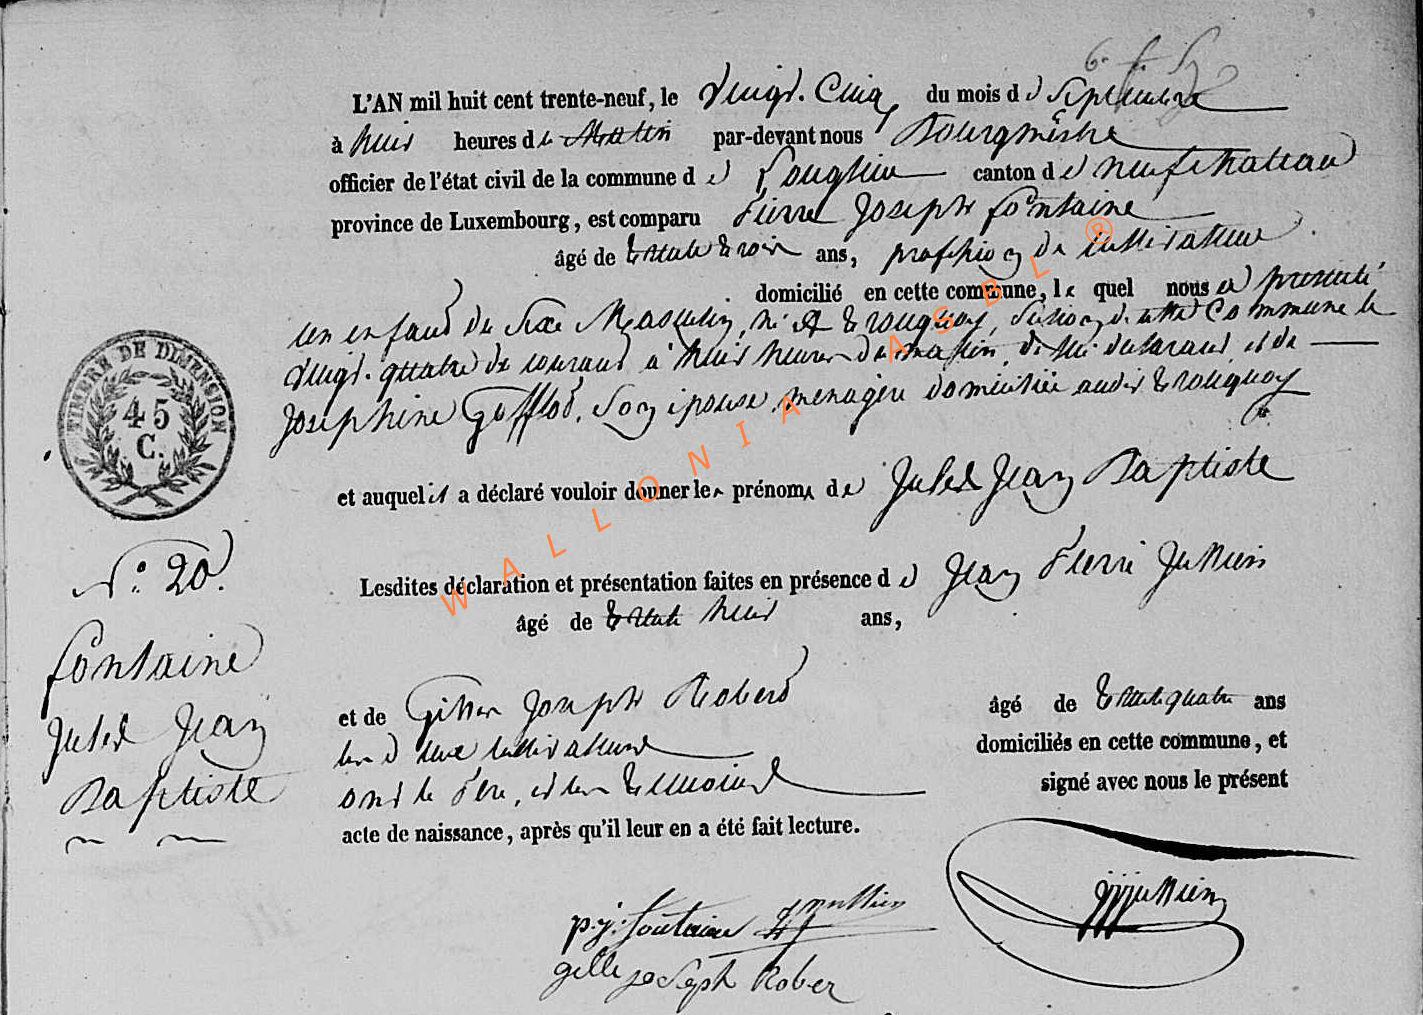 L'AN mil huit cent trente-neuf, le vingt-Cinq du mois de Septembre
à huit heures du Matin par-devant nous Bourgmestre
officier de l'état civil de la commune de Longlier canton de neufchateau
province de Luxembourg, est comparu Pierre Joseph fontaine
âgé de trente trois ans, profession de cultivateur
domicilié en cette commune, le quel nous a présenté
un enfant du Sexe Masculin, né à tronquoy, Section de cette Commune le
vingt-quatre du courant à huit heures du matin, de lui déclarant, et de
Josephine Gofflot, Son épouse, ménagère domiciliée audit tronquoy
TIMBRE DE DIMENSION
45
C.
et auquel il a déclaré vouloir donner les prénoms de Jules Jean Baptiste
N.° 20.
Lesdites déclaration et présentation faites en présence de Jean Pierre Jullien
âgé de trente huit ans,
fontaine
Jules Jean
Baptiste
et de Gilles Joseph Robert âgé de trente quatre ans
les deux cultivateurs domiciliés en cette commune, et
ont le Père, et les témoins signé avec nous le présent
acte de naissance, après qu'il leur en a été fait lecture.
p.j. fontaine
gille joseph Rober
WALLONIA ASBL ®